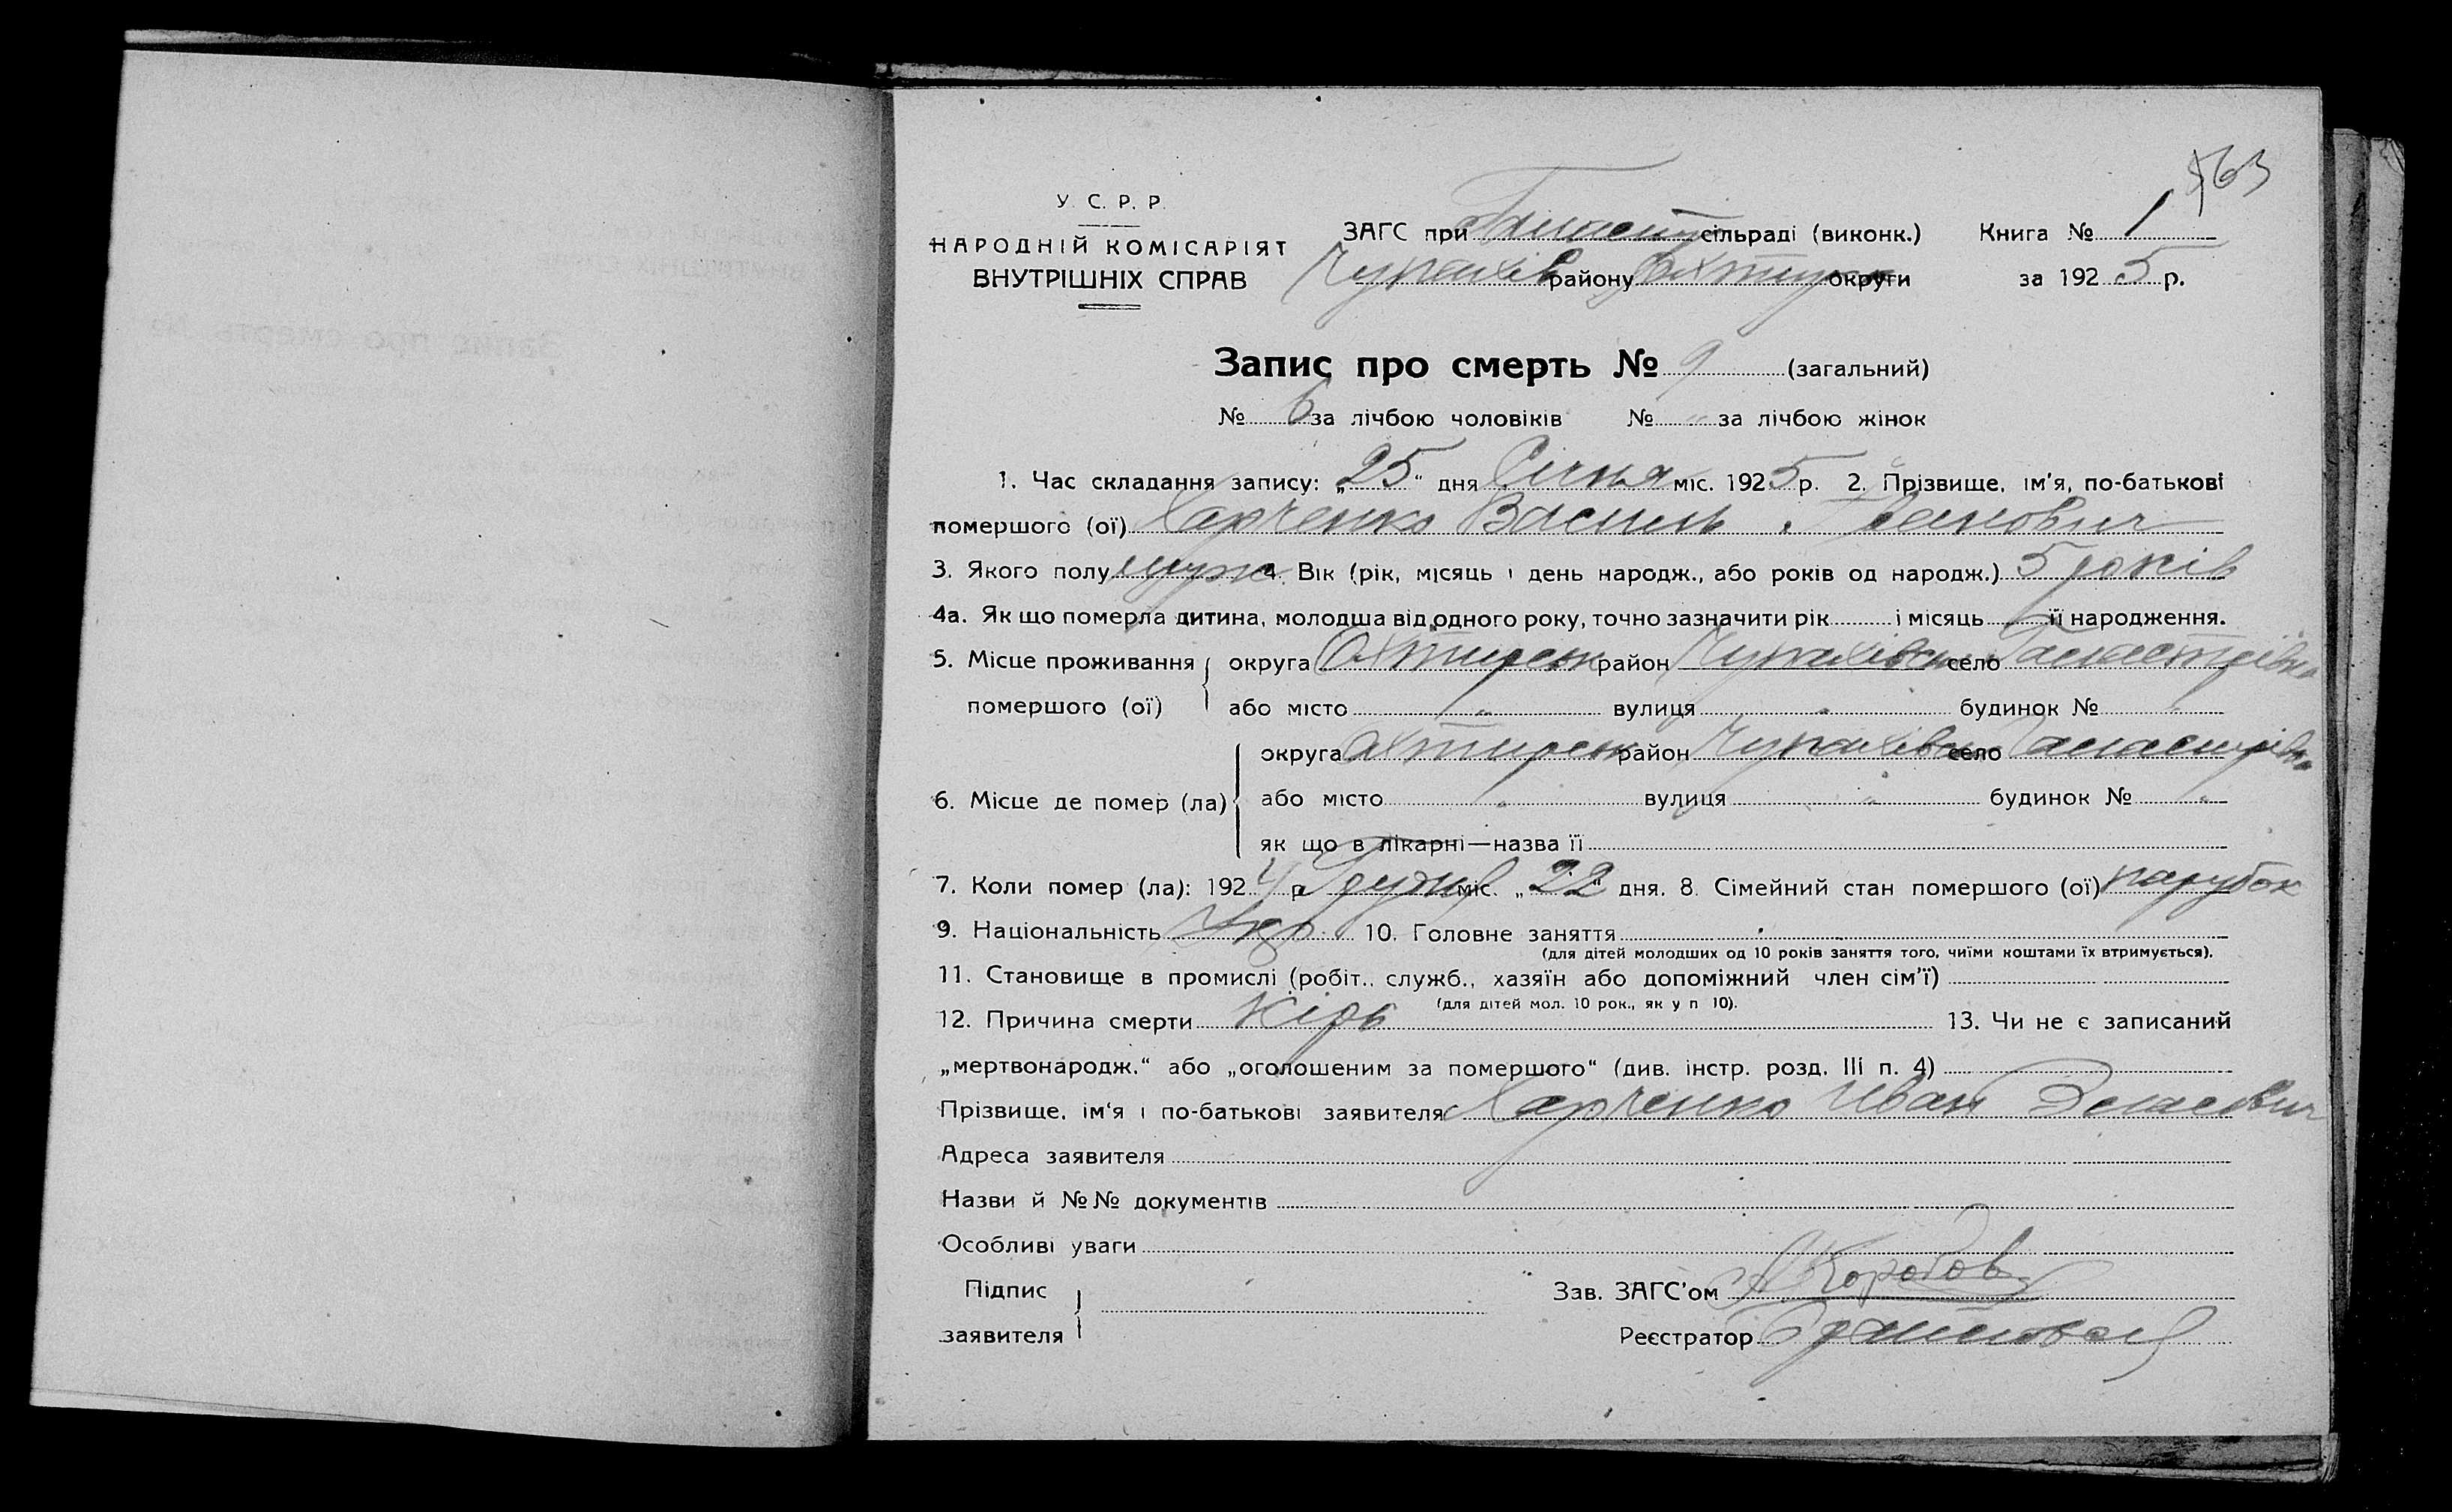 563
У. С. Р. Р.
НАРОДНІЙ КОМІСАРІЯТ
ВНУТРІШНІХ СПРАВ
ЗАГС при сільраді (виконк.)
Чупахів району Охтир округи
Книга № 1
за 1925 р.
Запис про смерть № 9 (загальний)
№ 6 за лічбою чоловіків № " за лічбою жінок
1. Час складання запису: „25" дня Січня міс. 1925 р. 2. Прізвище, ім'я, по-батькові
помершого (ої) Харченко Василь Іванович
3. Якого полу муж 4. Вік (рік, місяць і день народж., або років од народж.) 5 років
4а. Як що померла дитина, молодша від одного року, точно зазначити рік і місяць її народження.
5. Місце проживання помершого (ої) округа Охтирськ район Чупахівськ село
або місто " вулиця " будинок № "
6. Місце де помер (ла) округа Охтирськ район Чупахівськ село
або місто " вулиця " будинок № "
як що в лікарні—назва її
7. Коли помер (ла): 1924 р. Грудня міс. „22" дня. 8. Сімейний стан помершого (ої) парубок
9. Національність Укр. 10. Головне заняття
(для дітей молодших од 10 років заняття того, чиїми коштами їх втримується).
11. Становище в промислі (робіт., служб., хазяїн або допоміжний член сім'ї)
(для дітей мол. 10 рок., як у п 10).
12. Причина смерти Кірь 13. Чи не є записаний
„мертвонародж." або „оголошеним за помершого" (див. інстр. розд. III п. 4)
Прізвище, ім'я і по-батькові заявителя Харченко Иван Власович
Адреса заявителя
Назви й №№ документів
Особливі уваги
Підпис заявителя
Зав. ЗАГС'ом А Коробов
Реєстратор